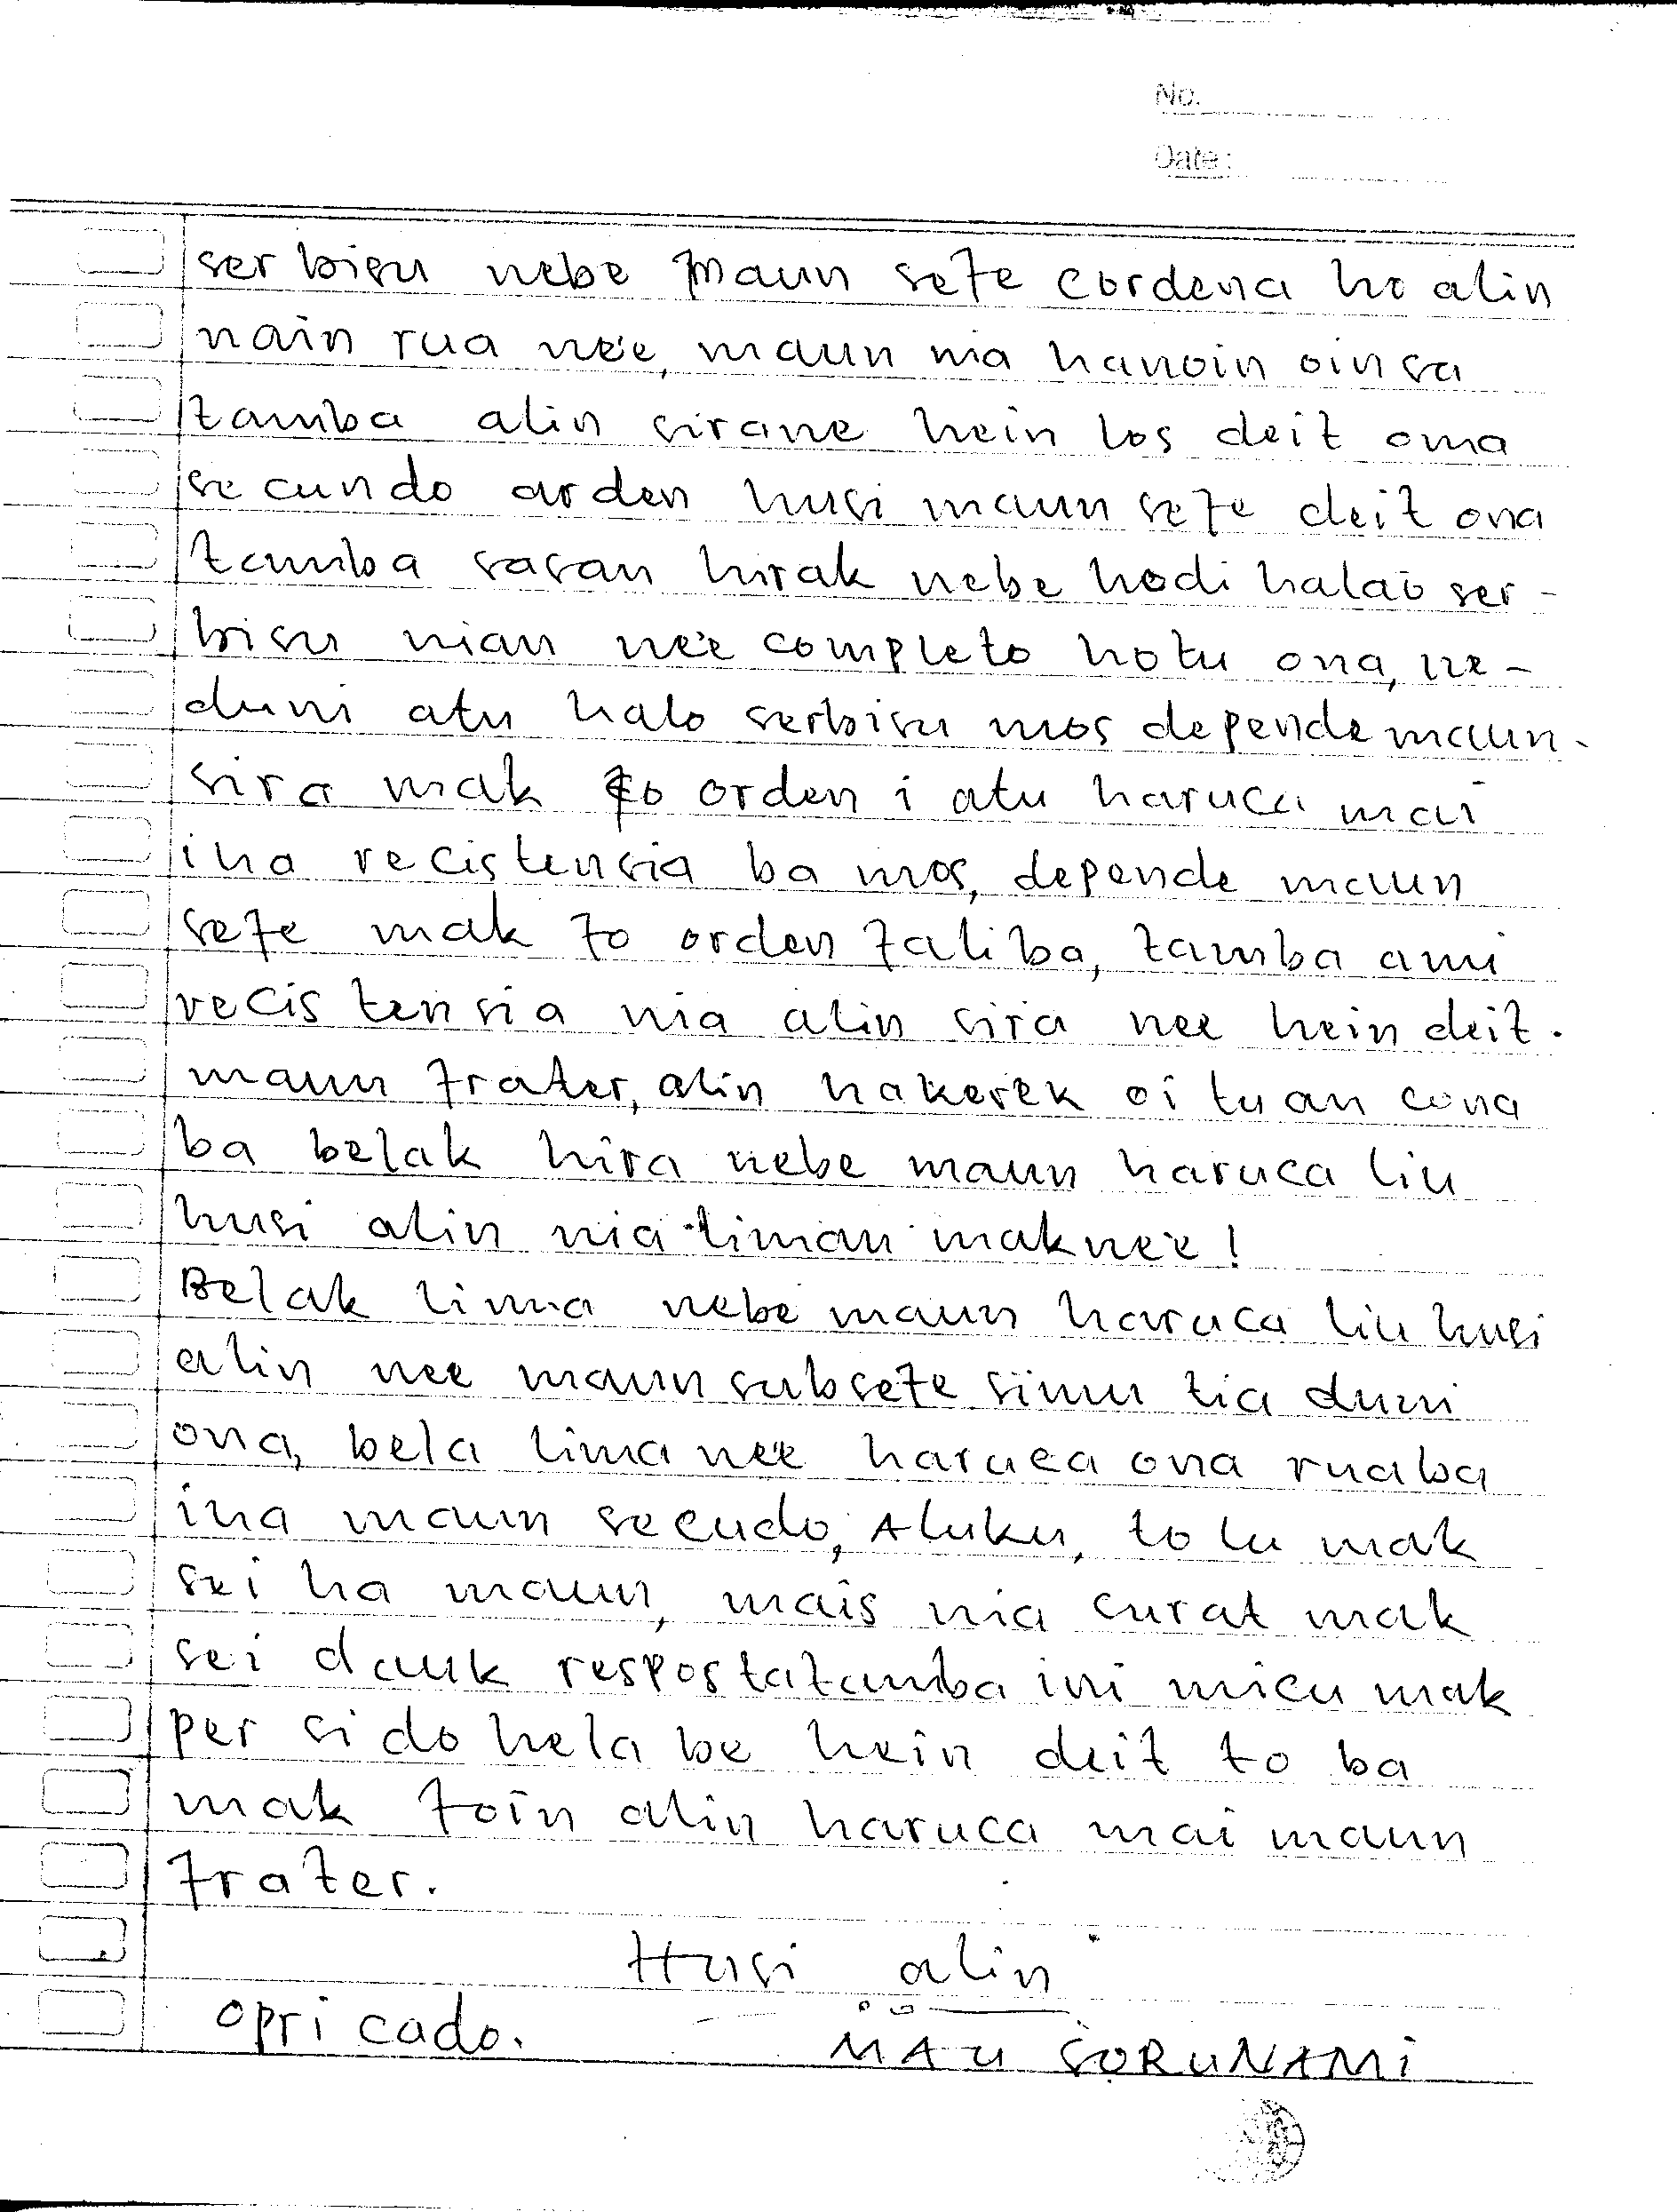 No.
Date:
serbisu nebe maun sefe cordena ho alin
nain rua ne'e, maun nia hanoin oin sa
tamba alin sirane hein los deit ona
secundo orden husi maun sefe deit ona
tamba sasan hirak nebe hodi halao ser-
bisu nian ne'e completo hotu ona, ne-
duni atu halo serbisu mos depende maun-
sira mak fo orden i atu haruca mai
iha recistensia ba mos, depende maun
sefe mak fo orden faliba, tamba ami
recistensia nia alin sira nee hein deit.
maun frater, alin hakerek oituan cona
ba belak hira nebe maun haruca liu
husi alin nia liman mak ne'e!
Belak lima nebe maun haruca liu husi
alin nee maun subsefe simu tia duni
ona, bela lima ne'e haruca ona rua ba
iha maun secudo, Aluku, tolu mak
sei ha maun, mais nia surat mak
sei dauk resposta tamba ini micu mak
persido hela be hein deit to ba
mak foin alin haruca mai maun
frater.
Husi alin
opricado.
MAU SORUNAMI